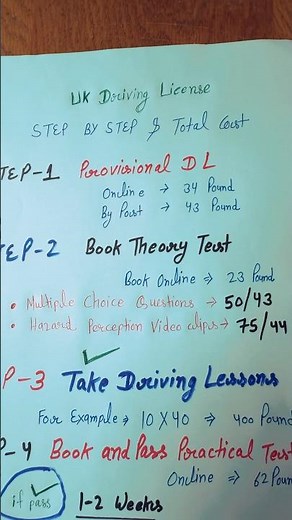 UK Driving License
STEP BY STEP & Total Cost
TEP-1 Provisional DL
Online → 34 Pound
By Post → 43 Pound
TEP-2 Book Theory Test
Book Online ⇒ 23 Pound
• Multiple Choice Questions → 50/43
• Hazard Perception Video clips → 75/44
P-3 Take Driving Lessons
For Example → 10 X 40 ⇒ 400 Pound
P-4 Book and Pass Practical Test
Online ⇒ 62 Poun
if pass
1-2 Weeks